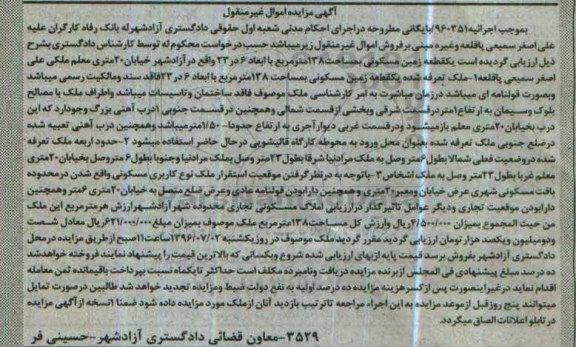 آگهی مزایده اموال غیرمنقول
بموجب اجرائیه ۹۶۰۳۵۱/بایگانی مطروحه دراجرای احکام مدنی شعبه اول حقوقی دادگستری آزادشهرله بانک رفاه کارگران علیه
علی اصغر سمیعی پاقلعه وغیره مبنی برفروش اموال غیرمنقول زیرمیباشد حسب درخواست محکوم له توسط کارشناس دادگستری بشرح
ذیل ارزیابی گردیده است یکقطعه زمین مسکونی بمساحت ۱۳۸مترمربع با ابعاد ۶در۲۳ واقع در آزادشهر خیابان۲۰متری معلم ملکی علی
اصغر سمیعی پاقلعه ۱-ملک تعرفه شده یکقطعه زمین مسکونی بمساحت ۱۳۸مترمربع با ابعاد ۶در ۲۳فاقد سند ومالکیت رسمی میباشد
وبصورت قولنامه ای میباشد درزمان مباشرت به امر کارشناسی ملک موصوف فاقد ساختمان وتاسیسات میباشد واطراف ملک با مصالح
بلوک وسیمان به ارتفاع ۱متر درقسمت شرقی وبخشی ازقسمت شمالی وهمچنین درقسمت جنوبی ۱درب آهنی بزرگ وجودارد که این
درب بخیابان۲۰متری معلم بازمیشود ودرقسمت غربی دیوار آجری به ارتفاع حدودا۱/۵۰مترمیباشد وهمچنین درب آهنی تعبیه شده
درضلع جنوبی ملک تعرفه شده بعنوان محل ورود به محوطه کارگاه قالیشویی درحال حاضر استفاده میشود ۲-حدود اربعه ملک تعرفه
شده دروضعیت فعلی شمالا بطول ۶متر وصل به ملک مرادنیا شرقا بطول ۲۳متر وصل به ملک مرادنیا وجنوبا بطول ۶متروصل بخیابان۲۰متری
معلم غربا بطول ۲۳متر وصل به ملک اشخاص ۳-باتوجه به درنظرگرفتن موقعیت استقرار ملک نوع کاربری مسکونی واقع شدن درمحدوده
بافت مسکونی شهری عرض خیابان ومعبر۲۰متری وهمچنین دارابودن قولنامه عادی وعرض ضلع متصل به خیابان۲۰متری ۶متر وهمچنین
دارابودن موقعیت تجاری ودیگر عوامل تاثیرگذار درارزیابی املاک مسکونی تجاری محدوده شهر آزادشهرارزش هرمترمربع این ملک
من حیث المجموع بمیزان ۴/۵۰۰/۰۰۰ریال وارزش کل مساحت ۱۳۸مترمربع ملک موصوف بمیزان مبلغ ۶۲۱/۰۰۰/۰۰۰ریال معادل شصت
ودومیلیون ویکصد هزار تومان ارزیابی گردید مقرر گردید ملک موصوف در روزیکشنبه ۱۳۹۶/۰۷/۰۲ساعت ۱۱صبح ازطریق مزایده درمحل
دادگستری آزادشهر بفروش برسد قیمت پایه ازبهای ارزیابی شده شروع وبکسانی که بالاترین قیمت را پیشنهاد نمایند فروخته خواهدشد
ده درصد مبلغ پیشنهادی فی المجلس ازبرنده مزایده دریافت ونامبرده مکلف است حداکثر تا یکماه نسبت بپرداخت باقیمانده ثمن معامله
اقدام نماید درغیراینصورت پس از کسر هزینه مزایده ده درصد اولیه به نفع دولت ضبط ومزایده تجدید خواهد شد طالبین درصورت تمایل
میتوانند پنج روزقبل ازموعد مزایده به این اجراء مراجعه تا ترتیب بازدید آنان ازملک مورد مزایده داده شود ضمنا ۱نسخه از آگهی مزایده
در تابلو اعلانات الصاق میگردد.
۳۵۲۹-معاون قضائی دادگستری آزادشهر-حسینی فر